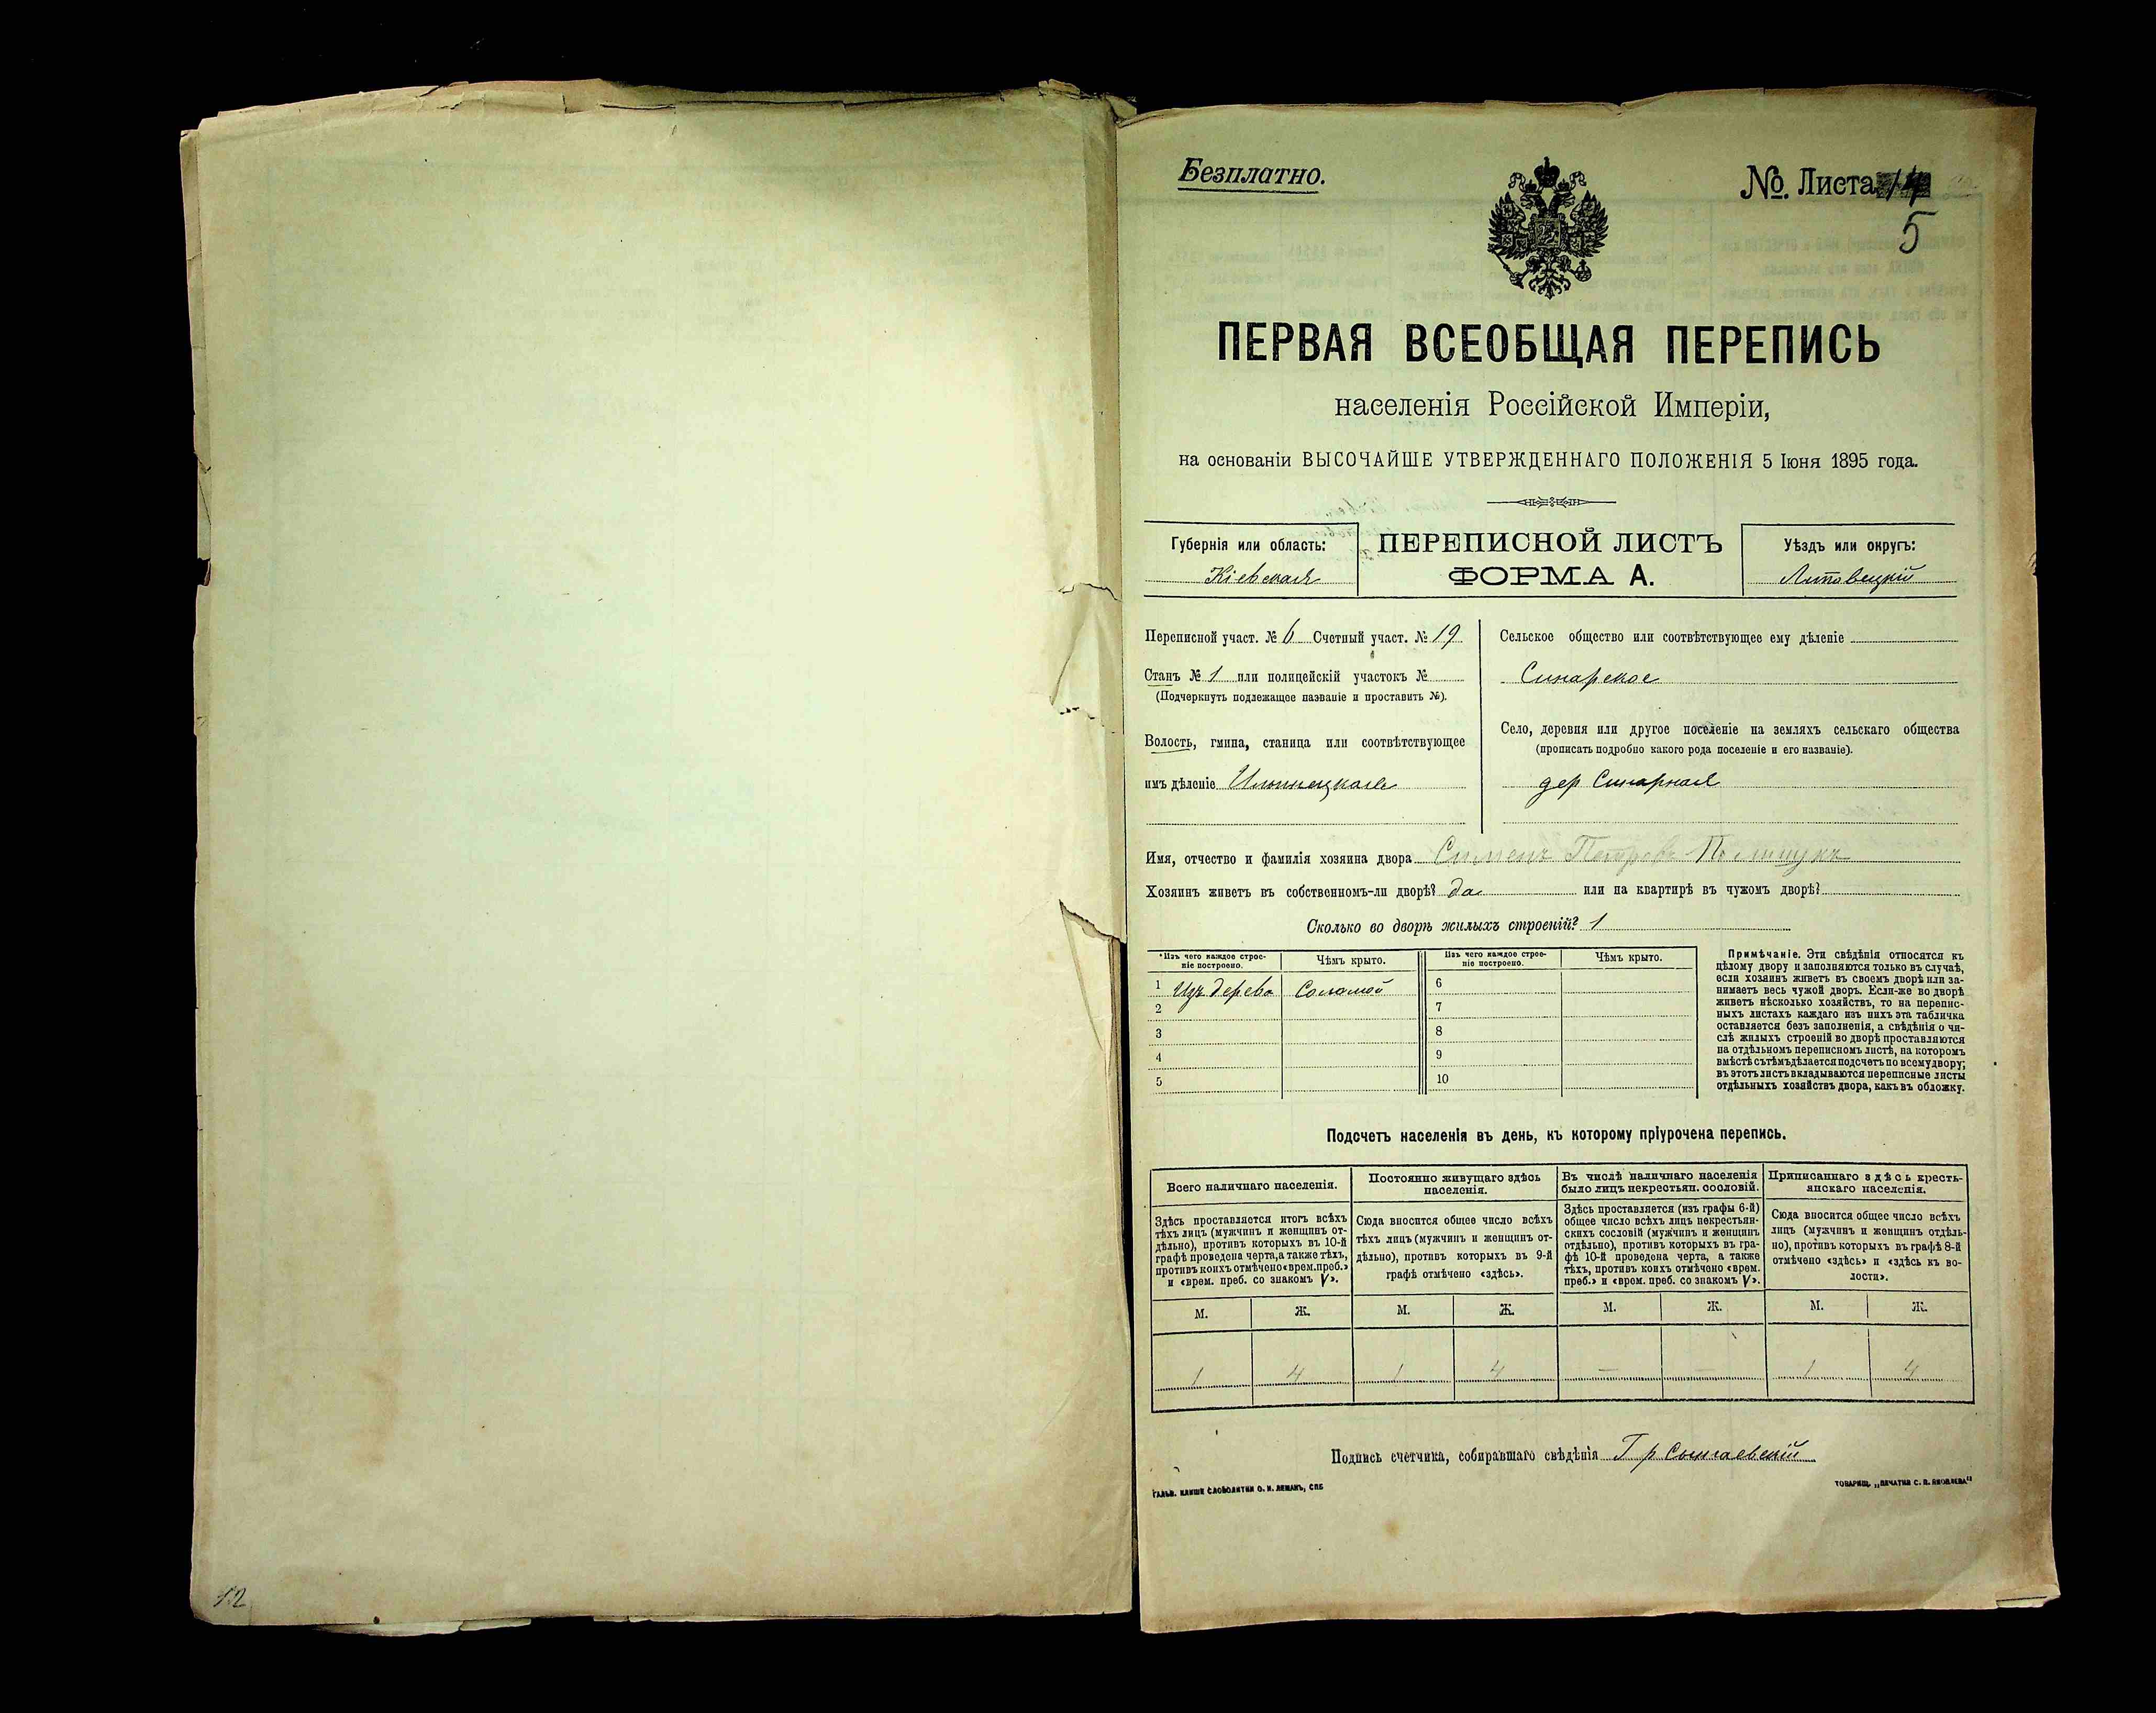 Безплатно.
№ Листа 14
5
ПЕРВАЯ ВСЕОБЩАЯ ПЕРЕПИСЬ
населенія Россійской Имперіи,
на основаніи ВЫСОЧАЙШЕ УТВЕРЖДЕННАГО ПОЛОЖЕНІЯ 5 Іюня 1895 года.
Губернія или область:
Кіевская
ПЕРЕПИСНОЙ ЛИСТЪ
ФОРМА А.
Уѣздъ или округъ:
Липовецкій
Переписной участ. № 6 Счетный участ. № 19
Станъ № 1 или полицейскій участокъ №
(Подчеркнуть подлежащее названіе и проставить №).
Волость, гмина, станица или соотвѣтствующее
имъ дѣленіе Ильинецкая
Сельское общество или соотвѣтствующее ему дѣленіе
Синарское
Село, деревня или другое поселеніе на земляхъ сельскаго общества
(прописать подробно какого рода поселеніе и его названіе).
дер Синарная
Имя, отчество и фамилія хозяина двора Сименъ Петровъ Полищукъ
Хозяинъ живетъ въ собственномъ-ли дворѣ? да или на квартирѣ въ чужомъ дворѣ?
Сколько во дворѣ жилыхъ строеній? 1
Изъ чего каждое строе-
ніе построено.
Чѣмъ крыто.
1 Изъ дерева Соломой
2
3
4
5
Изъ чего каждое строе-
ніе построено.
Чѣмъ крыто.
6
7
8
9
10
Примѣчаніе. Эти свѣдѣнія относятся къ
цѣлому двору и заполняются только въ случаѣ,
если хозяинъ живетъ въ своемъ дворѣ или за-
нимаетъ весь чужой дворъ. Если-же во дворѣ
живетъ нѣсколько хозяйствъ, то на перепис-
ныхъ листахъ каждаго изъ нихъ эта табличка
оставляется безъ заполненія, а свѣдѣнія о чи-
слѣ жилыхъ строеній во дворѣ проставляются
на отдѣльномъ переписномъ листѣ, на которомъ
вмѣстѣ съ тѣмъ дѣлается подсчетъ по всему двору;
въ этотъ листъ вкладываются переписные листы
отдѣльныхъ хозяйствъ двора, какъ въ обложку.
Подсчетъ населенія въ день, къ которому пріурочена перепись.
Всего наличнаго населенія.
Здѣсь проставляется итогъ всѣхъ
тѣхъ лицъ (мужчинъ и женщинъ от-
дѣльно), противъ которыхъ въ 10-й
графѣ проведена черта, а также тѣхъ,
противъ коихъ отмѣчено «врем. преб.»
и «врем. преб. со знакомъ V».
М. Ж.
1 4
Постоянно живущаго здѣсь
населенія.
Сюда вносится общее число всѣхъ
тѣхъ лицъ (мужчинъ и женщинъ от-
дѣльно), противъ которыхъ въ 9-й
графѣ отмѣчено «здѣсь».
М. Ж.
1 4
Въ числѣ наличнаго населенія
было лицъ некрестьян. сословій.
Здѣсь проставляется (изъ графы 6-й)
общее число всѣхъ лицъ некрестьян-
скихъ сословій (мужчинъ и женщинъ
отдѣльно), противъ которыхъ въ гра-
фѣ 10-й проведена черта, а также
тѣхъ, противъ коихъ отмѣчено «врем.
преб.» и «врем. преб. со знакомъ V».
М. Ж.
— —
Приписаннаго здѣсь кресть-
янскаго населенія.
Сюда вносится общее число всѣхъ
лицъ (мужчинъ и женщинъ отдѣль-
но), противъ которыхъ въ графѣ 8-й
отмѣчено «здѣсь» и «здѣсь къ во-
лости».
М. Ж.
1 4
Подпись счетчика, собиравшаго свѣдѣнія Гр Сынгаевскій
ГАЛЬВ. КЛИШЕ СЛОВОЛИТНИ О. И. ЛЕМАНЪ, СПБ
ТОВАРИЩ. „ПЕЧАТНЯ С. П. ЯКОВЛЕВА"
12